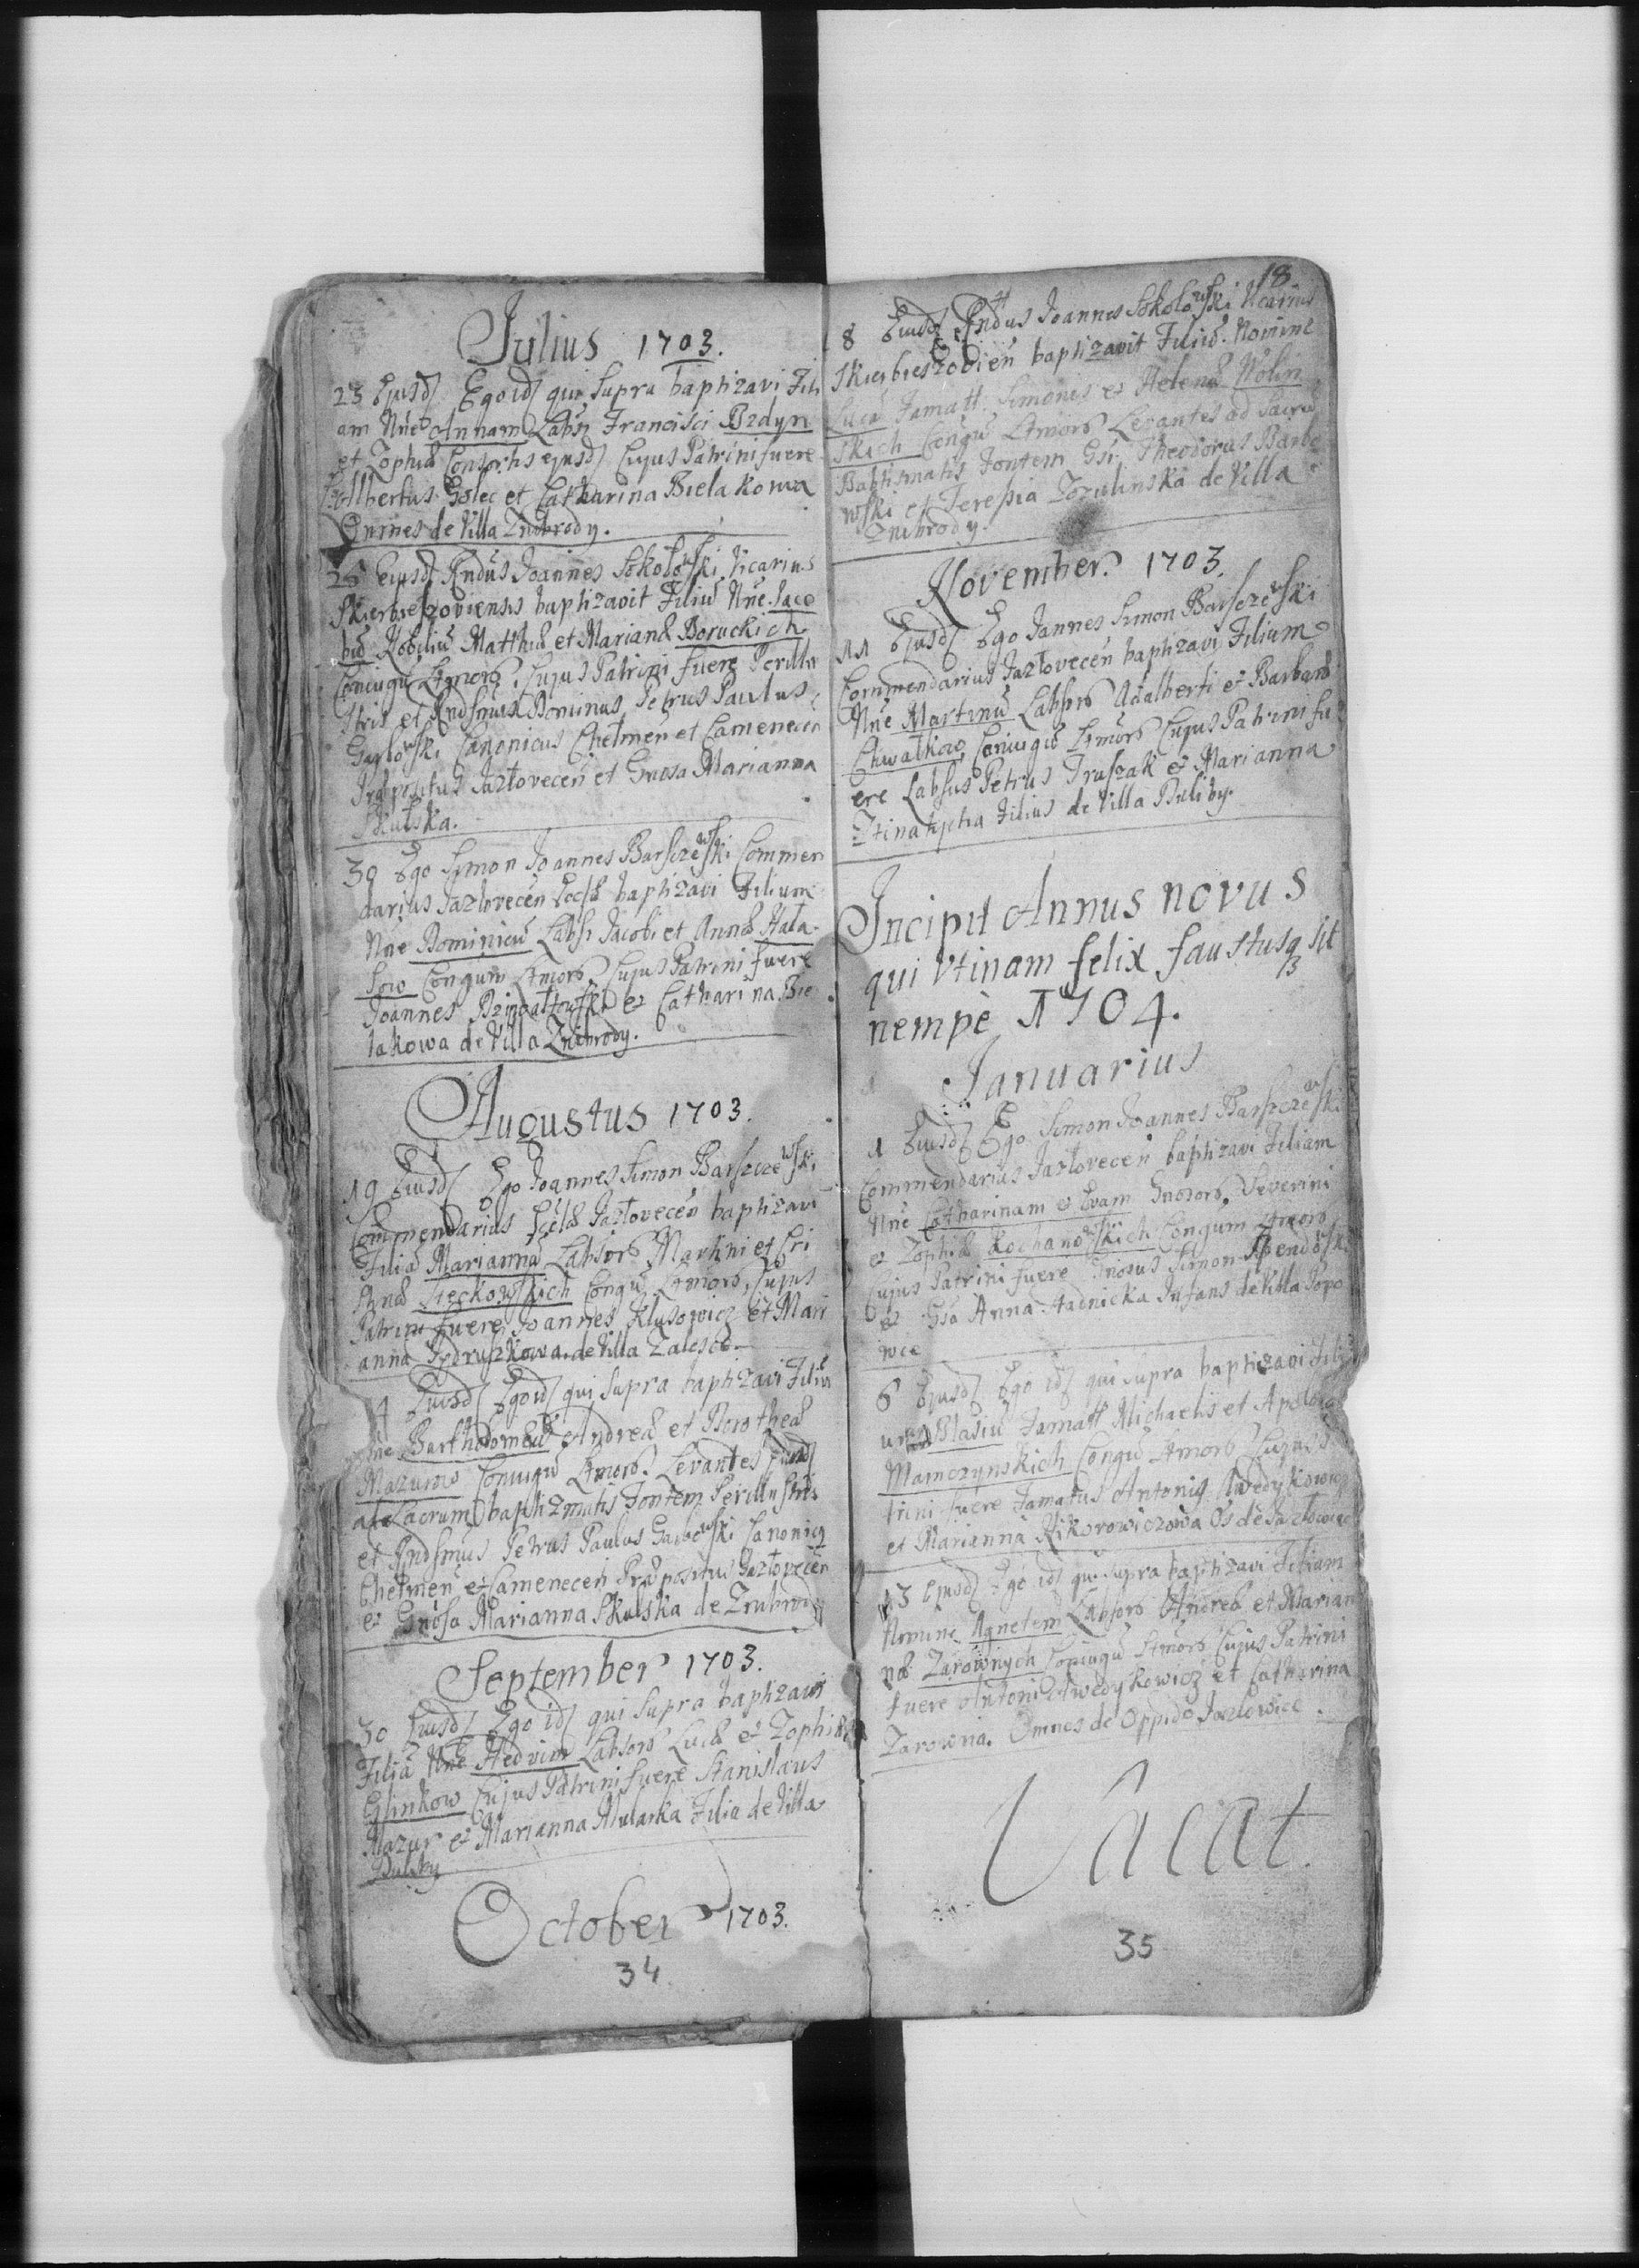 Julius 1703.
23 Ejusd Ego id qui supra baptizavi Fili
am Nne Annam Labsi Francisci Bzdyn
et Zophiæ Consortis ejusd Cujus Patrini fuere
Albertus Golec et Catharina Bielakowa
Omnes de Villa Znibrody.
25 Ejusd Rndus Joannes Sokołowski Vicarius
Skierbieszoviensis baptizavit Filiũ Nne Jaco
bũ Nobiliũ Matthiæ et Marianæ Boruckich
Coniugũ Cujus Patrini fuere Perillu
stris et Rndsmus Dominus Petrus Paulus
Canonicus Chełmen et Camenecen
Præpositus Jazłovecen et Gnosa Marianna
Skulska.
30 Ego Simon Joannes Barszczewski Commen
darius Jazłovecen Eccłæ baptizavi Filium
Nne Dominicũ Labsi Jacobi et Annæ Hała
Conigum Cujus Patrini fuere
Joannes et Catharina Bie
lakowa de Villa Znibrody.
Augustus 1703.
19 Eiusd Ego Joannes Simon Barszczewski
Commendarius Eccłæ Jazłovecen baptizavi
Filiã Mariannã Labsors Martini et Cri
stinæ Sieckowskich Conigũ Cujus
Patrini fuere Joannes Klusowicz et Mari
anna de Villa Zalesce.
Eiusd Ego id qui supra baptizavi Filiũ
Nne Bartholomeũ Andreæ et Dorotheæ
Mazurow Coniugũ Levantes
ad Sacrum baptizmatis Fontem Perillustris
et Rndsmus Petrus Paulus Canonicq
Chełmen et Camenecen Præpositus Jazłovecen
et Gnosa Marianna Skulska de Znibrody
September 1703.
30 Eiusd Ego id qui supra baptizavi
Filiã Nne Hedvim Labsors Lucæ et Zophiæ
Glinkow Cujus Patrini fuere Stanislaus
Mazur et Marianna Mularka Filia de Villa
October 1703.
34
18
8 Eiusd Rndus Joannes Sokołowski Vicarius
Skierbieszovien baptizavit Filiũ Nomine
Lucã Famatt. Simonis et Helenæ Wolin
skich Conigũ Levantes ad Sacrũ
Babtismatis Fontem Theodorus Barbo
wski et Teressia Zozulinska de Villa
Znibrody.
November 1703.
11 Ejusd Ego Joannes Simon Barszczewski
Commendarius Jazłovecen baptizavi Filium
Nne Martinũ Labsors Adalberti et Barbaræ
Chwałkow Coniugũ Cujus Patrini fu
ere Labsus Petrus Truszak et Marianna
Filius de Villa
Incipit Annus novus
qui Utinam felix faustusq sit
nempè 1704.
Januarius
1 Eiusd Ego Simon Joannes Barszczewski
Commendarius Jazłovecen baptizavi Filiam
Nne Catharinam et Evam Gnosors Severini
et Zophiæ Kochanowskich Conigum
Cujus Patrini fuere Gnosus Simon
et Gsa Anna Infans de Villa Popo
wce
6 Ejusd Ego id qui supra baptizavi Fili
um Blasiũ Famatt Michaelis et
Mamczynskich Conigũ Cujus
trini fuere Famatus Antonig Awedykowicz
et Marianna Nikorowiczowa de Jazłowiec
13 Ejusd Ego id qui supra baptizavi Filiam
Nomine Agnetem Labsors Andreæ et Marian
næ Zarownych Coniugũ Cujus Patrini
fuere Antoni Awedykowicz et Catharina
Zarowna. Omnes de Oppido Jazłowice.
Vacat.
35